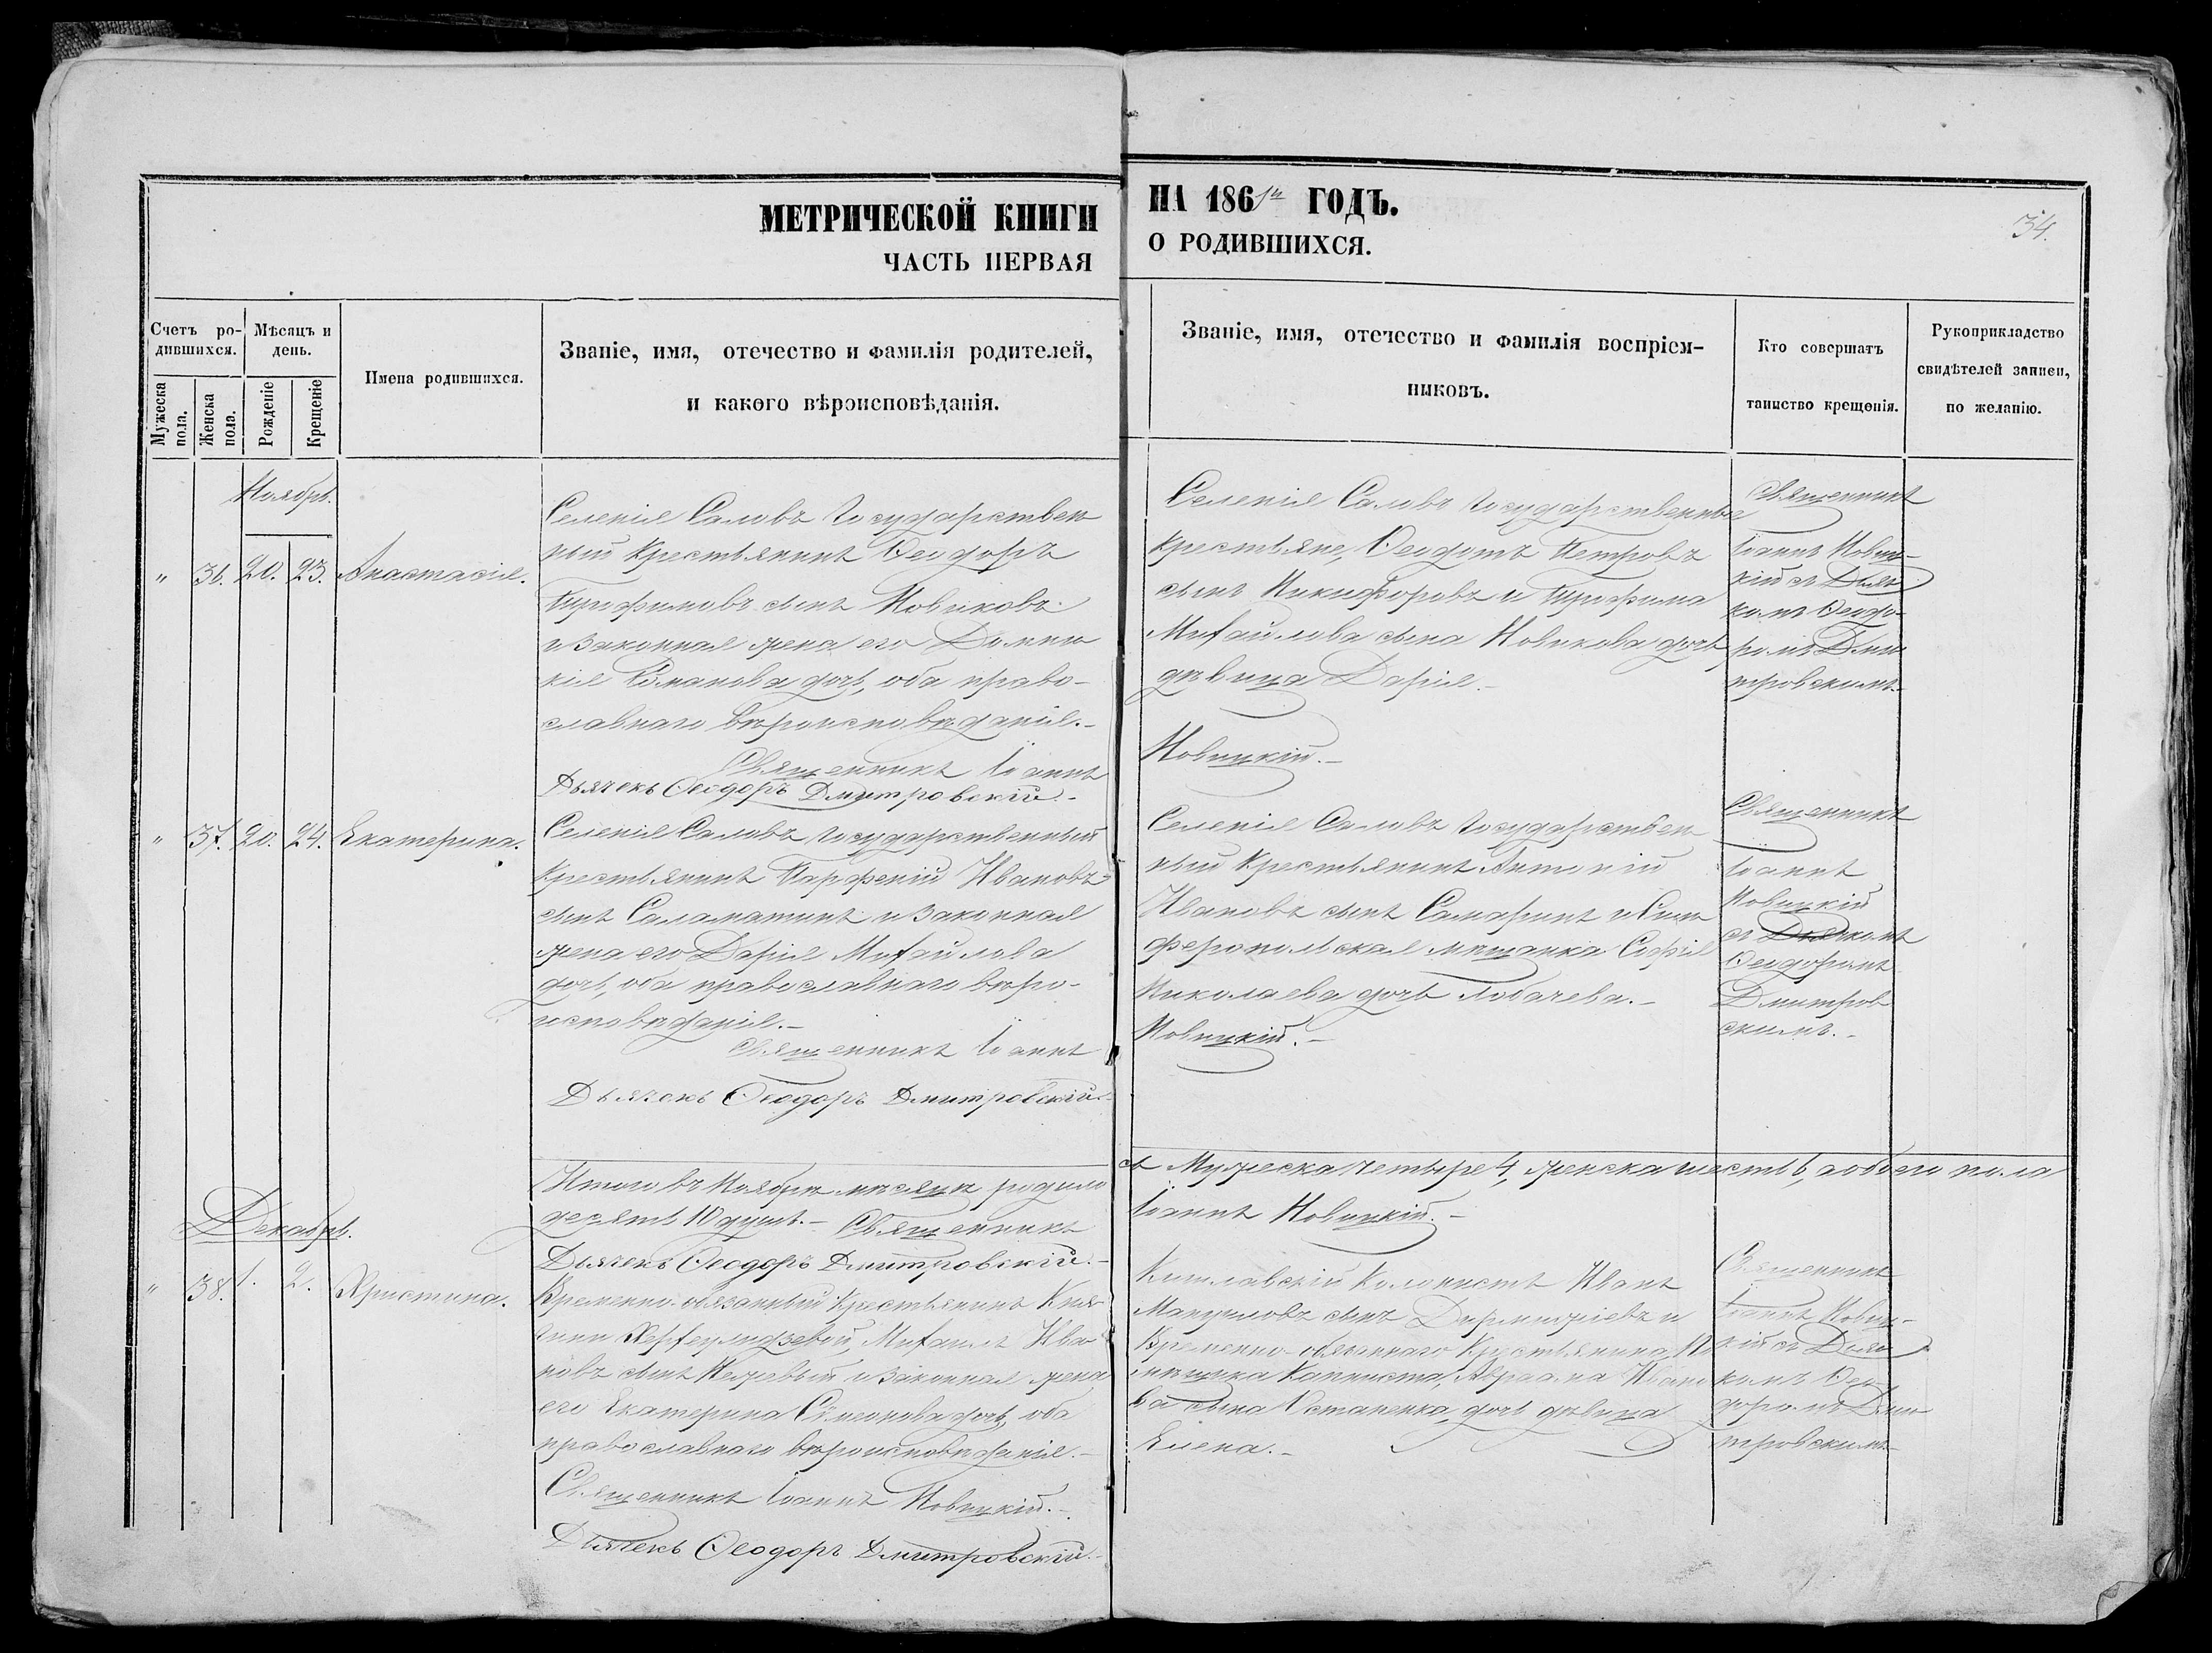 МЕТРИЧЕСКОЙ КНИГИ
ЧАСТЬ ПЕРВАЯ
НА 1861й ГОДЪ.
О РОДИВШИХСЯ.
34.
Счетъ ро-
дившихся.
Мѣсяцъ и
день.
Мужеска
пола.
Женска
пола.
Рожденіе
Крещеніе
Имена родившихся.
Званіе, имя, отечество и фамилія родителей,
и какого вѣроисповѣданія.
Званіе, имя, отечество и фамилія воспріем-
никовъ.
Кто совершатъ
таинство крещенія.
Рукоприкладство
свидѣтелей записи,
по желанію.
Ноябрь.
" 36. 20. 23. Анастасія.
Селенія Саловъ Государствен
ный Крестьянинъ Ѳеодоръ
Трифимовъ сынъ Новиковъ
и законная жена его Домни
кія Романова дочь, оба право-
славнаго вѣроисповѣданія.-
Священникъ Іоаннъ
Дьячекъ Ѳеодоръ Дмитровскій.-
Селенія Саловъ Государственные
Крестьяне, Ѳеодотъ Петровъ
сынъ Никифоровъ и Трифима
Михайлова сына Новикова дочь
дѣвица Дарія.-
Новицкій.-
Священникъ
Іоаннъ Новиц-
кій съ Дьяч
комъ Ѳеодо-
ромъ Дми
тровскимъ.-
" 37. 20. 24. Екатерина.
Селенія Саловъ Государственный
Крестьянинъ Парфеній Ивановъ
сынъ Саламатинъ и законная
жена его Дарія Михайлова
дочь, оба православнаго вѣро-
исповѣданія.-
Священникъ Іоаннъ
Дьячекъ Ѳеодоръ Дмитровскій.-
Селенія Саловъ Государствен
ный Крестьянинъ Антоній
Ивановъ сынъ Самаринъ и Сим
феропольская мѣщанка Софія
Николаева дочь Лобачева.-
Новицкій.-
Священникъ
Іоаннъ
Новицкій
съ Дьячкомъ
Ѳеодоромъ
Дмитров
скимъ.-
Итого въ Ноябрѣ мѣсяцѣ родило
сь Мужеска четыре 4, женска шесть 6, а обоего пола
десять 10 душъ.- Священникъ
Іоаннъ Новицкій.-
Дьячекъ Ѳеодоръ Дмитровскій.-
Декабрь.
" 38. 1. 2. Христина.
Временно-обязанный Крестьянинъ Кня
гини Херхеулидзевой, Михаилъ Ива
новъ сынъ Нежевый и законная жена
его Екатерина Сѵмеонова дочь, оба
православнаго вѣроисповѣданія.-
Священникъ Іоаннъ Новицкій.-
Дьячекъ Ѳеодоръ Дмитровскій.-
Кишлавскій Колонистъ Иванъ
Мануиловъ сынъ и
Временно-обязаннаго Крестьянина По
мѣщика Капниста, Авраама Ивано
ва сына Остапенка, дочь дѣвица
Елена.-
Священникъ
Іоаннъ Новиц-
кій съ Дьяч
комъ Ѳео-
доромъ Дми
тровскимъ.-